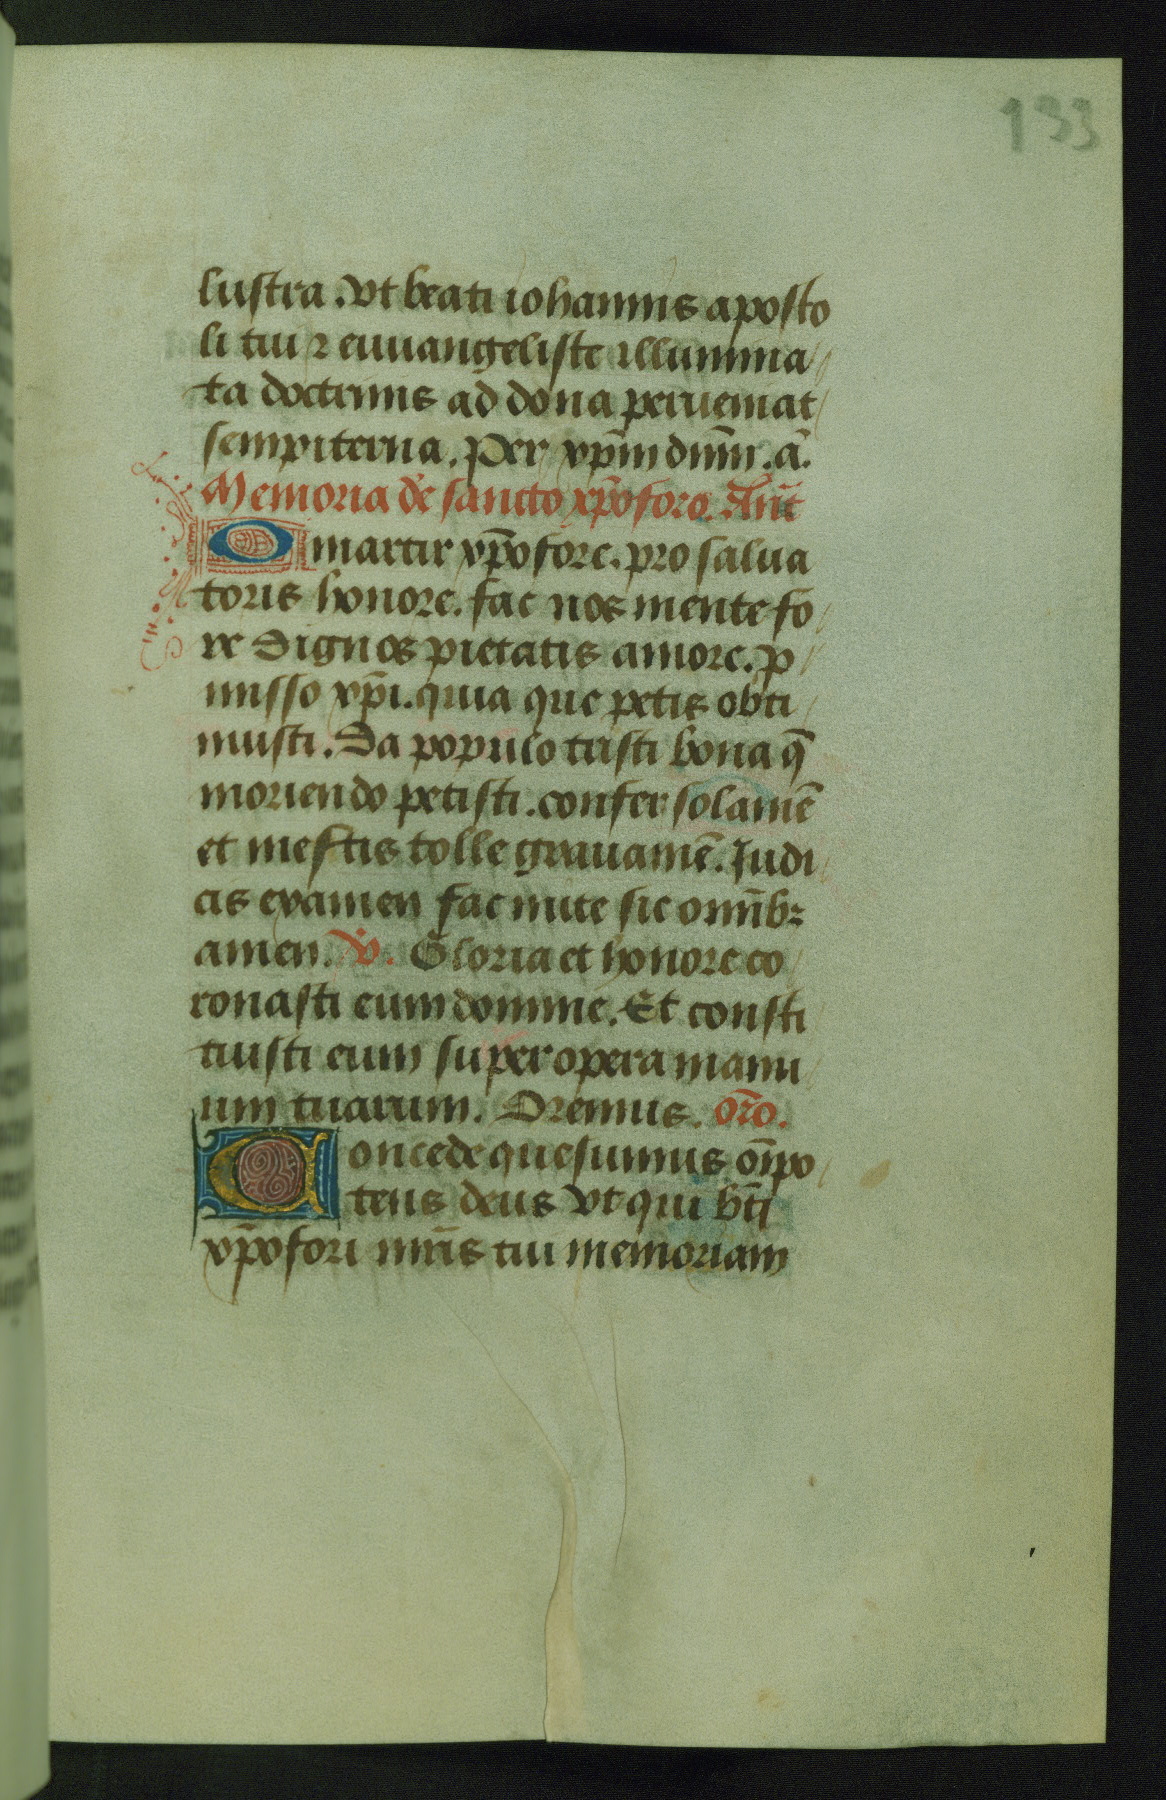 133
lustra. Vt beati iohannis aposto
li tui ⁊ euuangeliste illumina
ta doctrinis ad dona perueniat
sempiterna. Per xp̄m dn̄m. a͞.
Memoria de sancto xp̄oforo. An̄t
O martir xp̄ofore. pro salua
toris honore. fac nos mente fo
re dignos pietatis amore. p
misso xp̄i. quia que petis obti
nuisti. Da populo tristi bona q̄
moriendo petisti. confer solamē
et mestis tolle grauamē. Iudi
cis examen fac mite sic om̄ibꝫ
amen. v̇. Gloria et honore co
ronasti eum domine. Et consti
tuisti eum super opera manu
um tuarum. Oremus. or̄o.
Concede quesumus om̄ipo
tens deus Vt qui bt̄i
xp̄ofori mr̄is tui memoriam